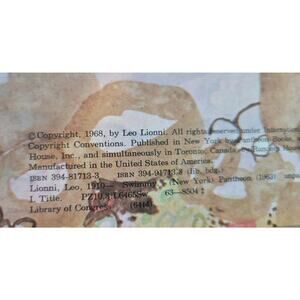 © Copyright, 1968, by Leo Lionni. All rights reserved under
Copyright Conventions. Published in New York by Pantheon Books,
House, Inc., and simultaneously in Toronto, Canada, Random House
Manufactured in the United States of America.
ISBN 394-81713-3 ISBN 394-91713-8 (lib. bdg.)
Lionni, Leo, 1910— Swimmy. (New York) Pantheon (1963)
I. Title. PZ10.3.L6465Sw 63—8504 ‡
Library of Congress (64f4)